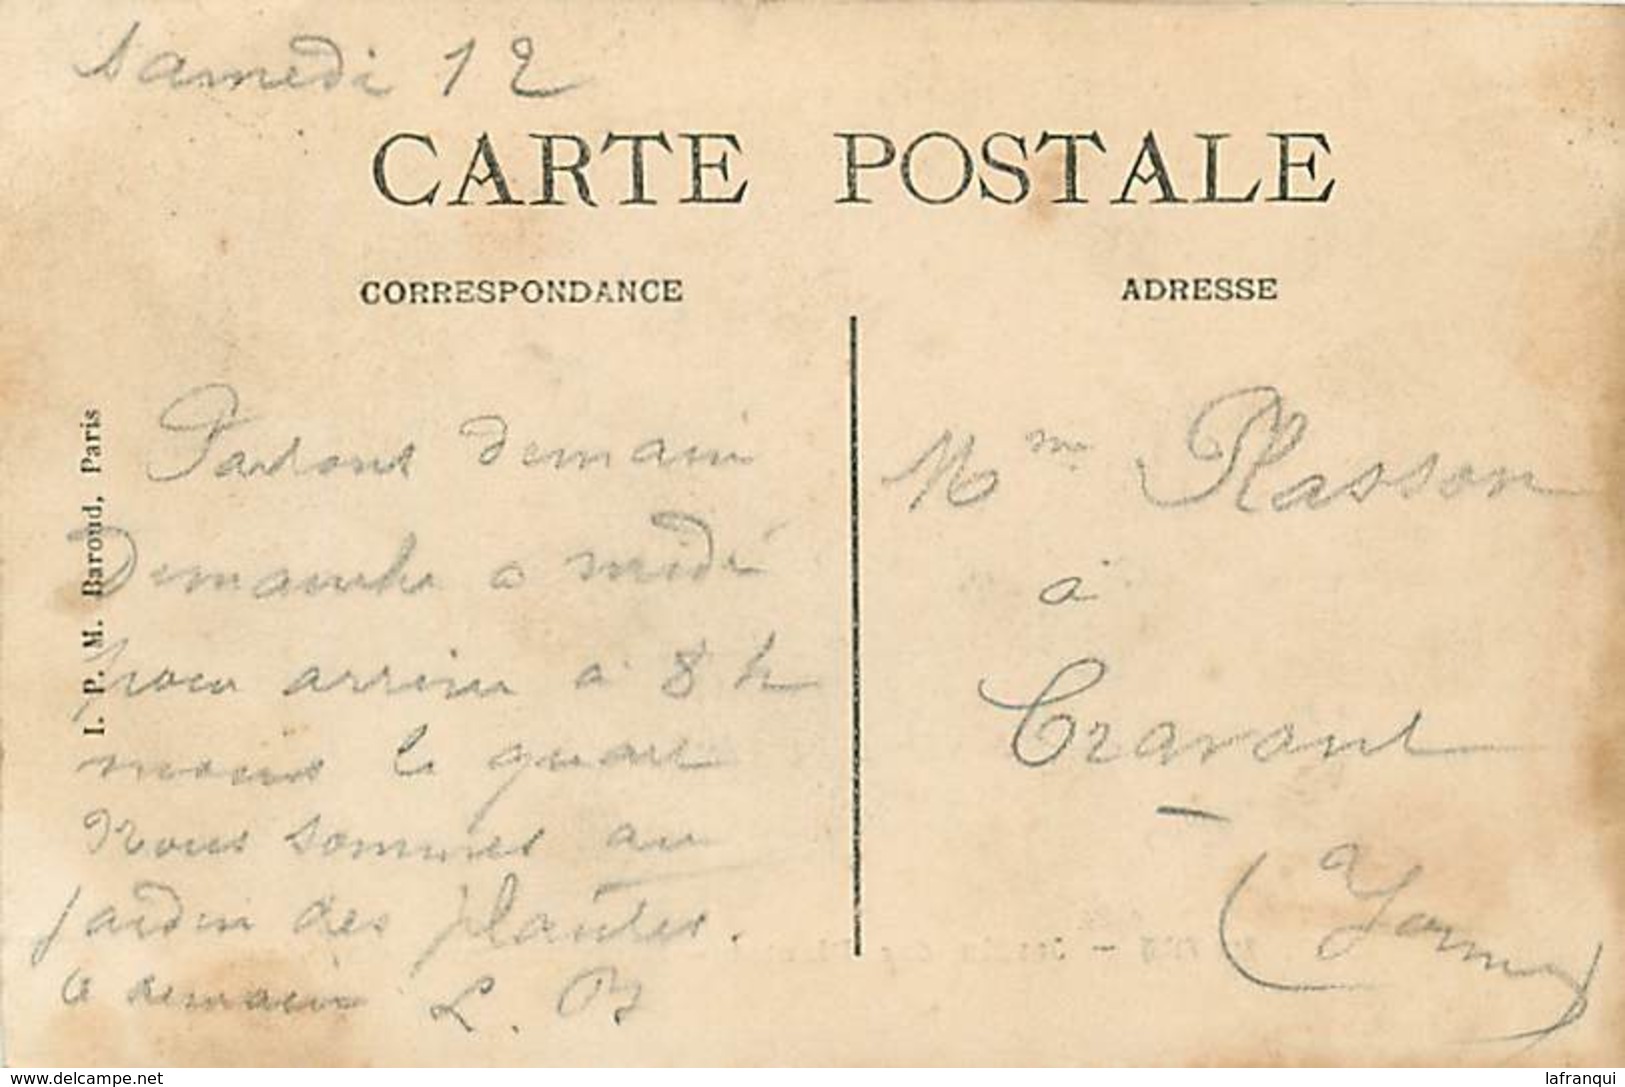 Samedi 12
CARTE POSTALE
CORRESPONDANCE
ADRESSE
I. P. M. Baroud, Paris
Partons demain
Dimanche a midi
pour arriver à 8 h
moins le quart
Nous sommes au
jardin des plantes.
a demain L. B
Mme Plasson
à
Cravant
(Yonne)
www.delcampe.net
lafranqui